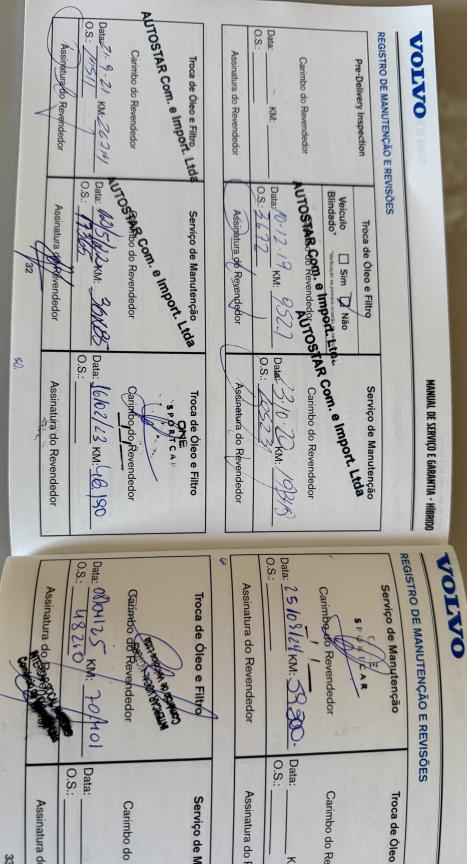 VOLVO
MANUAL DE SERVIÇO E GARANTIA - HÍBRIDO
REGISTRO DE MANUTENÇÃO E REVISÕES
Pre-Delivery Inspection
Carimbo do Revendedor
Data: KM:
O.S.:
Assinatura do Revendedor
Troca de Óleo e Filtro
Veículo Blindado* Sim Não
AUTOSTAR Com. e Import. Ltda
Data: 10-12-19 KM: 9527
O.S.: 3672
Assinatura do Revendedor
Serviço de Manutenção
Carimbo do Revendedor
AUTOSTAR Com. e Import. Ltda
Data: 23/10/20 KM:
O.S.:
Assinatura do Revendedor
Troca de Óleo e Filtro
Carimbo do Revendedor
AUTOSTAR Com. e Import. Ltda
Data: 21-9-21 KM:
O.S.:
Assinatura do Revendedor
Serviço de Manutenção
Carimbo do Revendedor
AUTOSTAR Com. e Import. Ltda
Data: KM:
O.S.:
Assinatura do Revendedor
32
Troca de Óleo e Filtro
ONE
SPORTCAR
Carimbo do Revendedor
Data: 16/01/23 KM: 46190
O.S.:
Assinatura do Revendedor
VOLVO
REGISTRO DE MANUTENÇÃO E REVISÕES
Serviço de Manutenção
SPORTCAR
Carimbo do Revendedor
Data: 25/09/24 KM: 59.300
O.S.:
Assinatura do Revendedor
Troca de Óleo
Carimbo do Re
Data: K
O.S.:
Assinatura do R
Troca de Óleo e Filtro
Carimbo do Revendedor
Data: KM: 70401
O.S.: 48240
Assinatura do Revendedor
Serviço de M
Carimbo do
Data:
O.S.:
Assinatura do
33